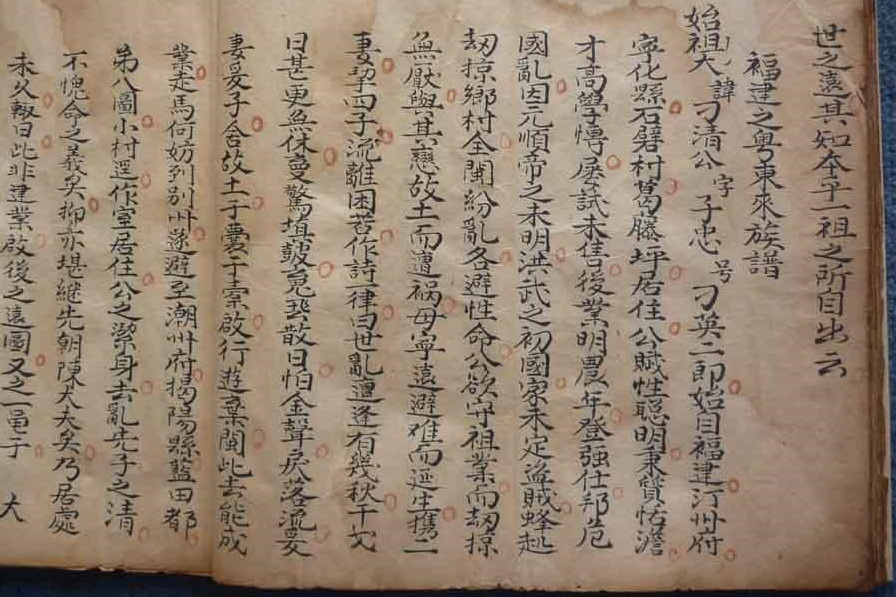 世之遠其知本乎一祖之所自出云
福建之粤東來族譜
始祖大 諱刁清公 字子忠 号刁英二郎始自福建汀州府
寧化縣石礕村葛藤坪居住公賦性聰明秉質恬澹
才高學博屡試未售後業明農年登强仕邦危
國亂因元順帝之末明洪武之初國家未定盗賊蜂起
刼掠鄉村全閩紛亂各避性命公欲守祖業而刼掠
無厭與其戀故土而遭禍毋寧遠避难而延生携二
妻挈四子流離困苦作詩一律曰世亂遭逢有幾秋干戈
日甚更無休 驚塤鼓魂 散日怕金聲 落流
妻爰子舍故土于囊于橐啟行遊棄閩此去能成
業走馬何妨列别州遂避至潮州府揭陽縣藍田都
弟八圖小村逕作室居住公之潔身去亂先子之清
不愧命之義矣抑亦堪継先朝陳大夫矣乃居處
未久輙曰此非建業啟後之遠圖又之一 于 大